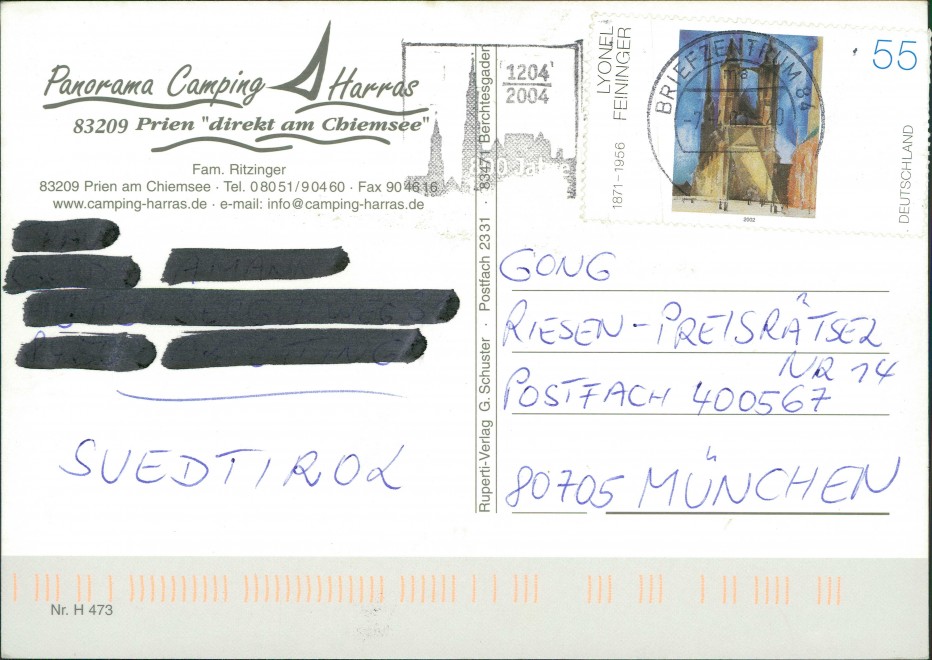 Panorama Camping Harras
83209 Prien "direkt am Chiemsee"
Fam. Ritzinger
83209 Prien am Chiemsee · Tel. 0 80 51/9 04 60 · Fax 90 46 16
www.camping-harras.de · e-mail: info@camping-harras.de
SUEDTIROL
Nr. H 473
Ruperti-Verlag G. Schuster · Postfach 23 31 · 83471 Berchtesgaden
1204
2004
BRIEFZENTRUM 84
LYONEL
FEININGER
1871–1956
55
DEUTSCHLAND
2002
GONG
RIESEN-PREISRÄTSEL
NR 14
POSTFACH 400567
80705 MÜNCHEN